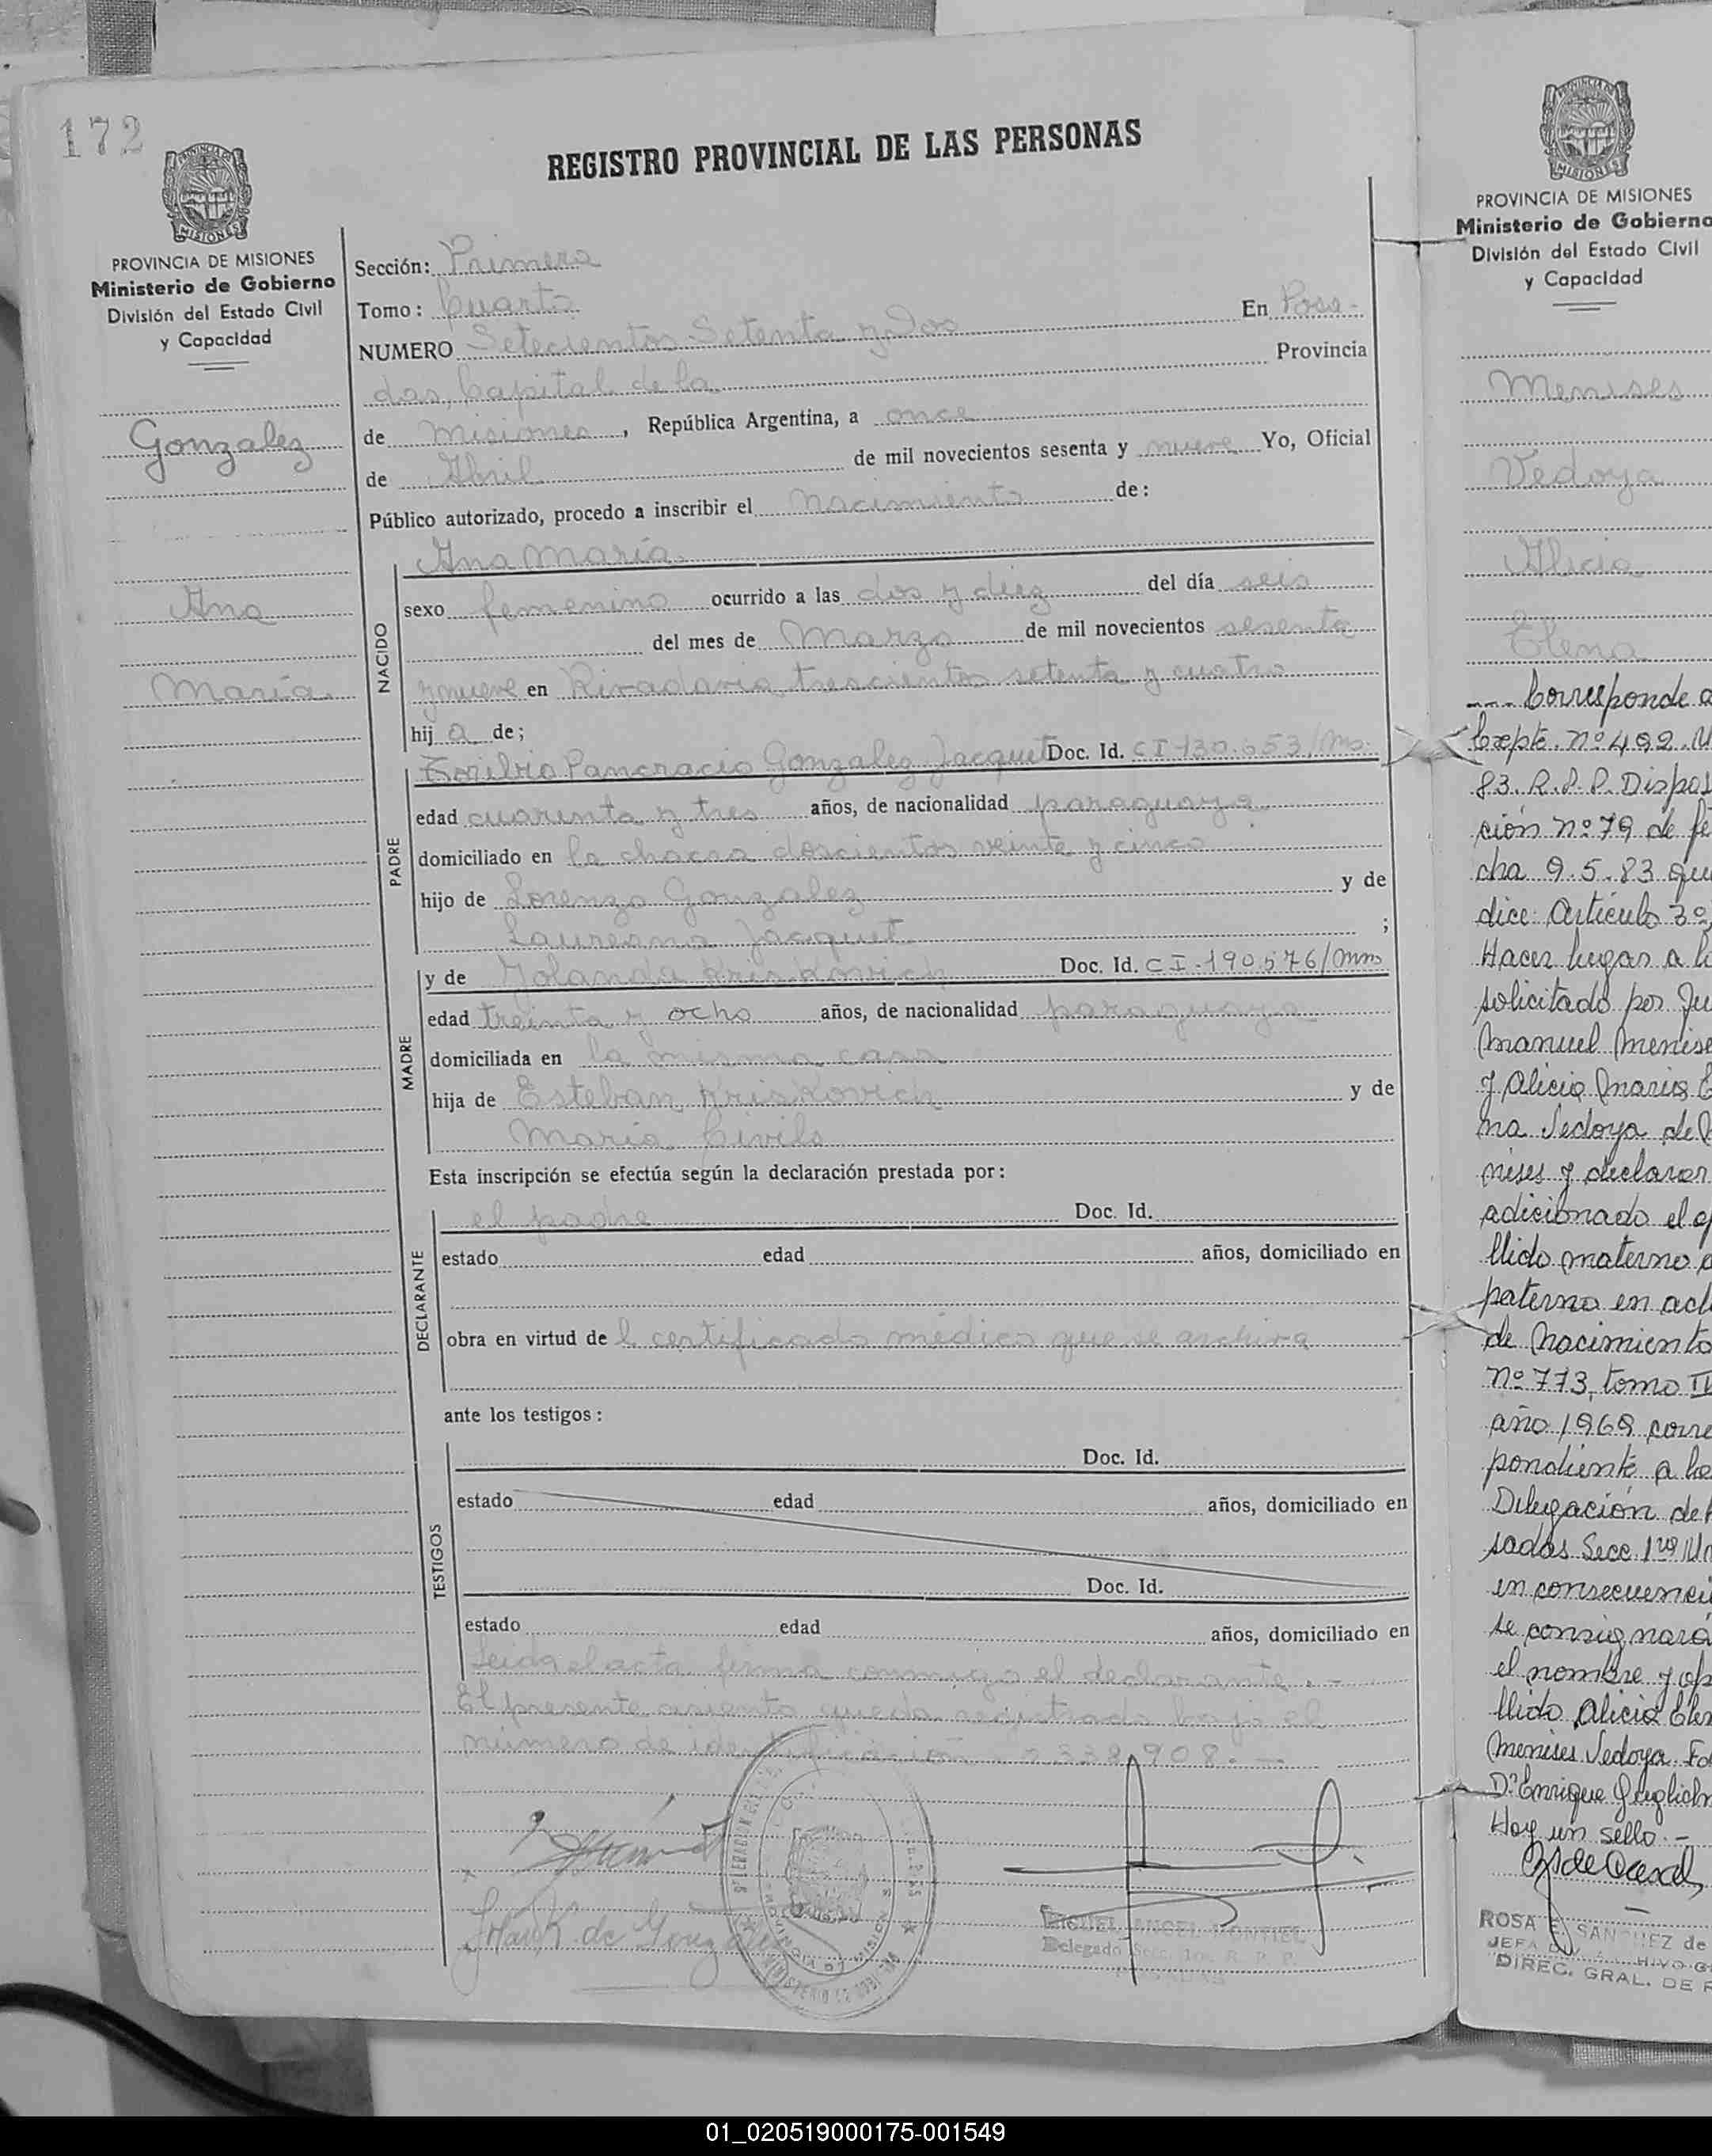 172
REGISTRO PROVINCIAL DE LAS PERSONAS
PROVINCIA DE MISIONES
MISIONES
PROVINCIA DE MISIONES
Ministerio de Gobierno
División del Estado Civil
y Capacidad
Gonzalez
Ana
María
Sección: Primera
Tomo: Cuarto
NUMERO Setecientos Setenta y dos En Posa-
das, Capital de la Provincia
de Misiones, República Argentina, a once
de Abril de mil novecientos sesenta y nueve Yo, Oficial
Público autorizado, procedo a inscribir el nacimiento de:
Ana María
NACIDO
sexo femenino ocurrido a las dos y diez del día seis
del mes de Marzo de mil novecientos sesenta
y nueve en Rivadavia trescientos setenta y cuatro
hij a de;
PADRE
Toribio Pancracio Gonzalez Jacquet Doc. Id. CI-130.653/Ms.
edad cuarenta y tres años, de nacionalidad paraguaya
domiciliado en la chacra doscientos veinte y cinco
hijo de Lorenzo Gonzalez y de
Laureana Jacquet ;
MADRE
y de Yolanda Kriskovich Doc. Id. CI-190.576/Mns
edad treinta y ocho años, de nacionalidad paraguaya
domiciliada en la misma casa
hija de Esteban Kriskovich y de
María Civils
Esta inscripción se efectúa según la declaración prestada por:
DECLARANTE
el padre Doc. Id.
estado edad años, domiciliado en
obra en virtud de l certificado médico que se archiva
ante los testigos:
TESTIGOS
Doc. Id.
estado edad años, domiciliado en
Doc. Id.
estado edad años, domiciliado en
Leida el acta firma conmigo el declarante. -
El presente asiento queda registrado bajo el
número de identificación 338.908. -
Yolan K de Gonzalez
MIGUEL ANGEL MONTIEL
Delegado Secc. 1ra. R. P. P.
POSADAS
PROVINCIA DE MISIONES
Ministerio de Gobierno
División del Estado Civil
y Capacidad
Menises
Vedoya
Alicia
Elena
---- Corresponde a
Expte. nº 492. M
83. R.P.P. Dispos
ción nº 79 de fe
cha 9.5.83 que
dice: Artículo 3º
Hacer lugar a lo
solicitado por Ju
Manuel Menise
y Alicia Maria E
na Vedoya de
nises y declarar
adicionado el ap
llido materno a
paterno en act
de Nacimiento
nº 773, tomo IV
año 1969 corre
pondiente a la
Delegación de
sadas Secc. 1ra
en consecuenci
se consignará
el nombre y ap
llido Alicia Ele
Menises Vedoya. Fd
Dr Enrique
Hay un sello.-
ROSA E. SANCHEZ de
DIREC. GRAL. DE R
01_020519000175-001549